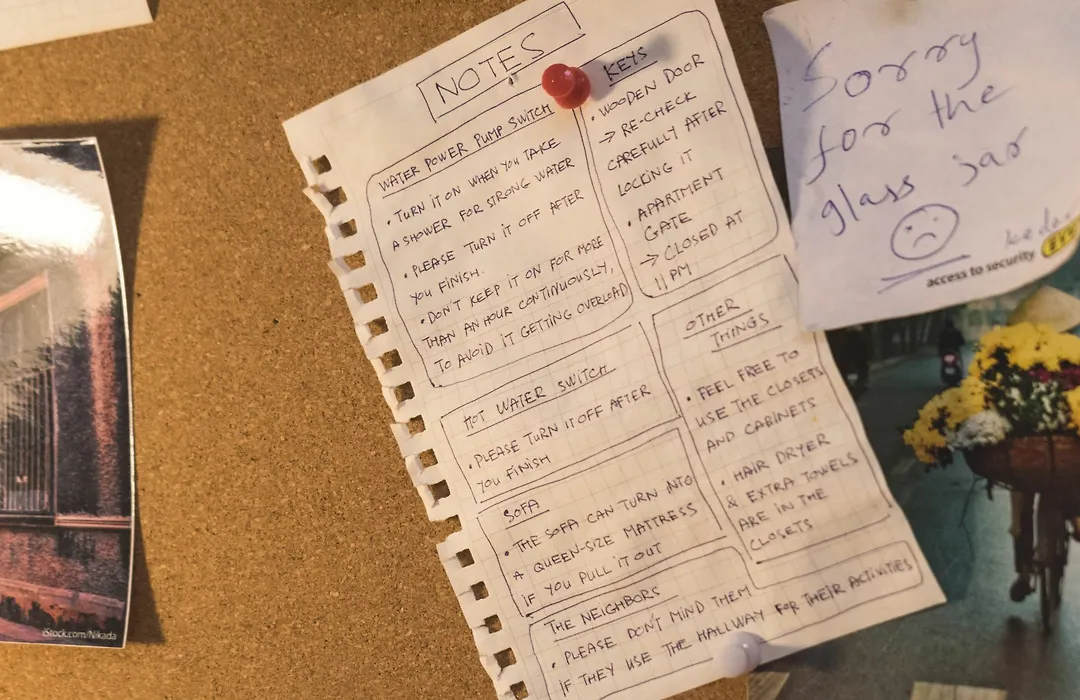 NOTES
WATER POWER PUMP SWITCH
• TURN IT ON WHEN YOU TAKE
A SHOWER FOR STRONG WATER
• PLEASE TURN IT OFF AFTER
YOU FINISH.
• DON'T KEEP IT ON FOR MORE
THAN AN HOUR CONTINUOUSLY,
TO AVOID IT GETTING OVERLOAD
HOT WATER SWITCH
• PLEASE TURN IT OFF AFTER
YOU FINISH
SOFA
• THE SOFA CAN TURN INTO
A QUEEN-SIZE MATTRESS
IF YOU PULL IT OUT
THE NEIGHBORS
• PLEASE DON'T MIND THEM
IF THEY USE THE HALLWAY FOR THEIR ACTIVITIES
KEYS
• WOODEN DOOR
→ RE-CHECK
CAREFULLY AFTER
LOCKING IT
• APARTMENT
GATE
→ CLOSED AT
11 PM
OTHER
THINGS
• FEEL FREE TO
USE THE CLOSETS
AND CABINETS
• HAIR DRYER
& EXTRA TOWELS
ARE IN THE
CLOSETS
Sorry
for the
glass jar
access to security
iStock.com/Nikada